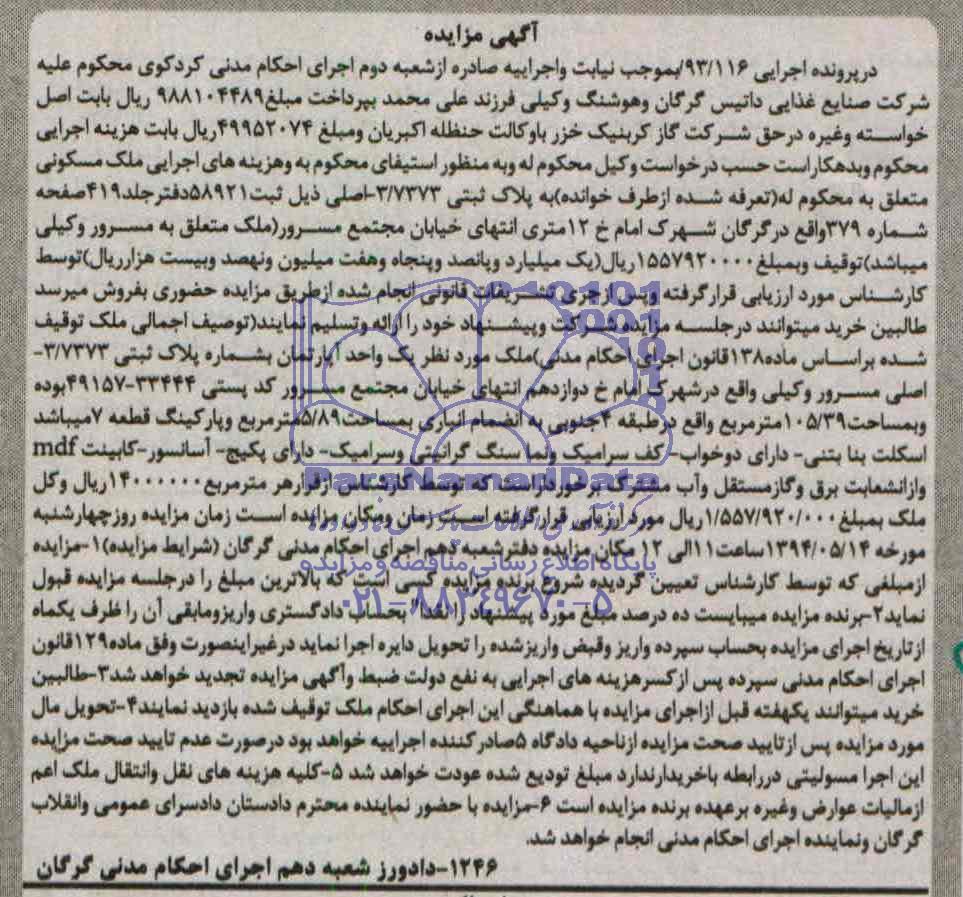 آگهی مزایده
درپرونده اجرایی ۹۳/۱۱۶/بموجب نیابت واجراییه صادره ازشعبه دوم اجرای احکام مدنی کردکوی محکوم علیه
شرکت صنایع غذایی داتیس گرگان وهوشنگ وکیلی فرزند علی محمد بپرداخت مبلغ۹۸۸۱۰۴۴۸۹ ریال بابت اصل
خواسته وغیره درحق شرکت گاز کربنیک خزر باوکالت حنظله اکبریان ومبلغ ۴۹۹۵۲۰۷۴ریال بابت هزینه اجرایی
محکوم وبدهکاراست حسب درخواست وکیل محکوم له وبه منظور استیفای محکوم به وهزینه های اجرایی ملک مسکونی
متعلق به محکوم له(تعرفه شده ازطرف خوانده)به پلاک ثبتی ۳/۷۳۷۳-اصلی ذیل ثبت۵۸۹۲۱دفترجلد۴۱۹صفحه
شماره ۳۷۹واقع درگرگان شهرک امام خ ۱۲متری انتهای خیابان مجتمع مسرور(ملک متعلق به مسرور وکیلی
میباشد)توقیف وبمبلغ۱۵۵۷۹۲۰۰۰۰ریال(یک میلیارد وپانصد وپنجاه وهفت میلیون ونهصد وبیست هزارریال)توسط
کارشناس مورد ارزیابی قرارگرفته وپس ازجری تشریفات قانونی انجام شده ازطریق مزایده حضوری بفروش میرسد
طالبین خرید میتوانند درجلسه مزایده شرکت وپیشنهاد خود را ارائه وتسلیم نمایند(توصیف اجمالی ملک توقیف
شده براساس ماده۱۳۸قانون اجرای احکام مدنی)ملک مورد نظر یک واحد آپارتمان بشماره پلاک ثبتی ۳/۷۳۷۳-
اصلی مسرور وکیلی واقع درشهرک امام خ دوازدهم انتهای خیابان مجتمع مسرور کد پستی ۳۳۴۴۴-۴۹۱۵۷بوده
وبمساحت۱۰۵/۳۹مترمربع واقع درطبقه ۴جنوبی به انضمام انباری بمساحت۵/۸۹مترمربع وپارکینگ قطعه ۷میباشد
اسکلت بنا بتنی- دارای دوخواب-کف سرامیک ونما سنگ گرانیتی وسرامیک- دارای پکیج- آسانسور-کابینت mdf
وازانشعابت برق وگازمستقل وآب مشترک برخورداراست که توسط کارشناس ازقرارهر مترمربع۱۴۰۰۰۰۰۰ریال وکل
ملک بمبلغ۱/۵۵۷/۹۲۰/۰۰۰ریال موردارزیابی قرارگرفته است زمان ومکان مزایده است زمان مزایده روزچهارشنبه
مورخه ۱۳۹۴/۰۵/۱۴ساعت۱۱الی ۱۲ مکان مزایده دفترشعبه دهم اجرای احکام مدنی گرگان (شرایط مزایده)۱-مزایده
ازمبلغی که توسط کارشناس تعیین گردیده شروع برنده مزایده کسی است که بالاترین مبلغ را درجلسه مزایده قبول
نماید۲-برنده مزایده میبایست ده درصد مبلغ مورد پیشنهاد را نقدا" بحساب دادگستری واریزومابقی آن را ظرف یکماه
ازتاریخ اجرای مزایده بحساب سپرده واریز وقبض واریزشده را تحویل دایره اجرا نماید درغیراینصورت وفق ماده۱۲۹قانون
اجرای احکام مدنی سپرده پس ازکسرهزینه های اجرایی به نفع دولت ضبط وآگهی مزایده تجدید خواهد شد۳-طالبین
خرید میتوانند یکهفته قبل ازاجرای مزایده با هماهنگی این اجرای احکام ملک توقیف شده بازدید نمایند۴-تحویل مال
مورد مزایده پس ازتایید صحت مزایده ازناحیه دادگاه ۵صادرکننده اجراییه خواهد بود درصورت عدم تایید صحت مزایده
این اجرا مسولیتی دررابطه باخریدارندارد مبلغ تودیع شده عودت خواهد شد ۵-کلیه هزینه های نقل وانتقال ملک اعم
ازمالیات عوارض وغیره برعهده برنده مزایده است ۶-مزایده با حضور نماینده محترم دادستان دادسرای عمومی وانقلاب
گرگان ونماینده اجرای احکام مدنی انجام خواهد شد.
۱۲۴۶-دادورز شعبه دهم اجرای احکام مدنی گرگان
ParsNamadData
پایگاه اطلاع رسانی مناقصه و مزایده
۰۲۱-۸۸۳۴۹۶۷۰-۵